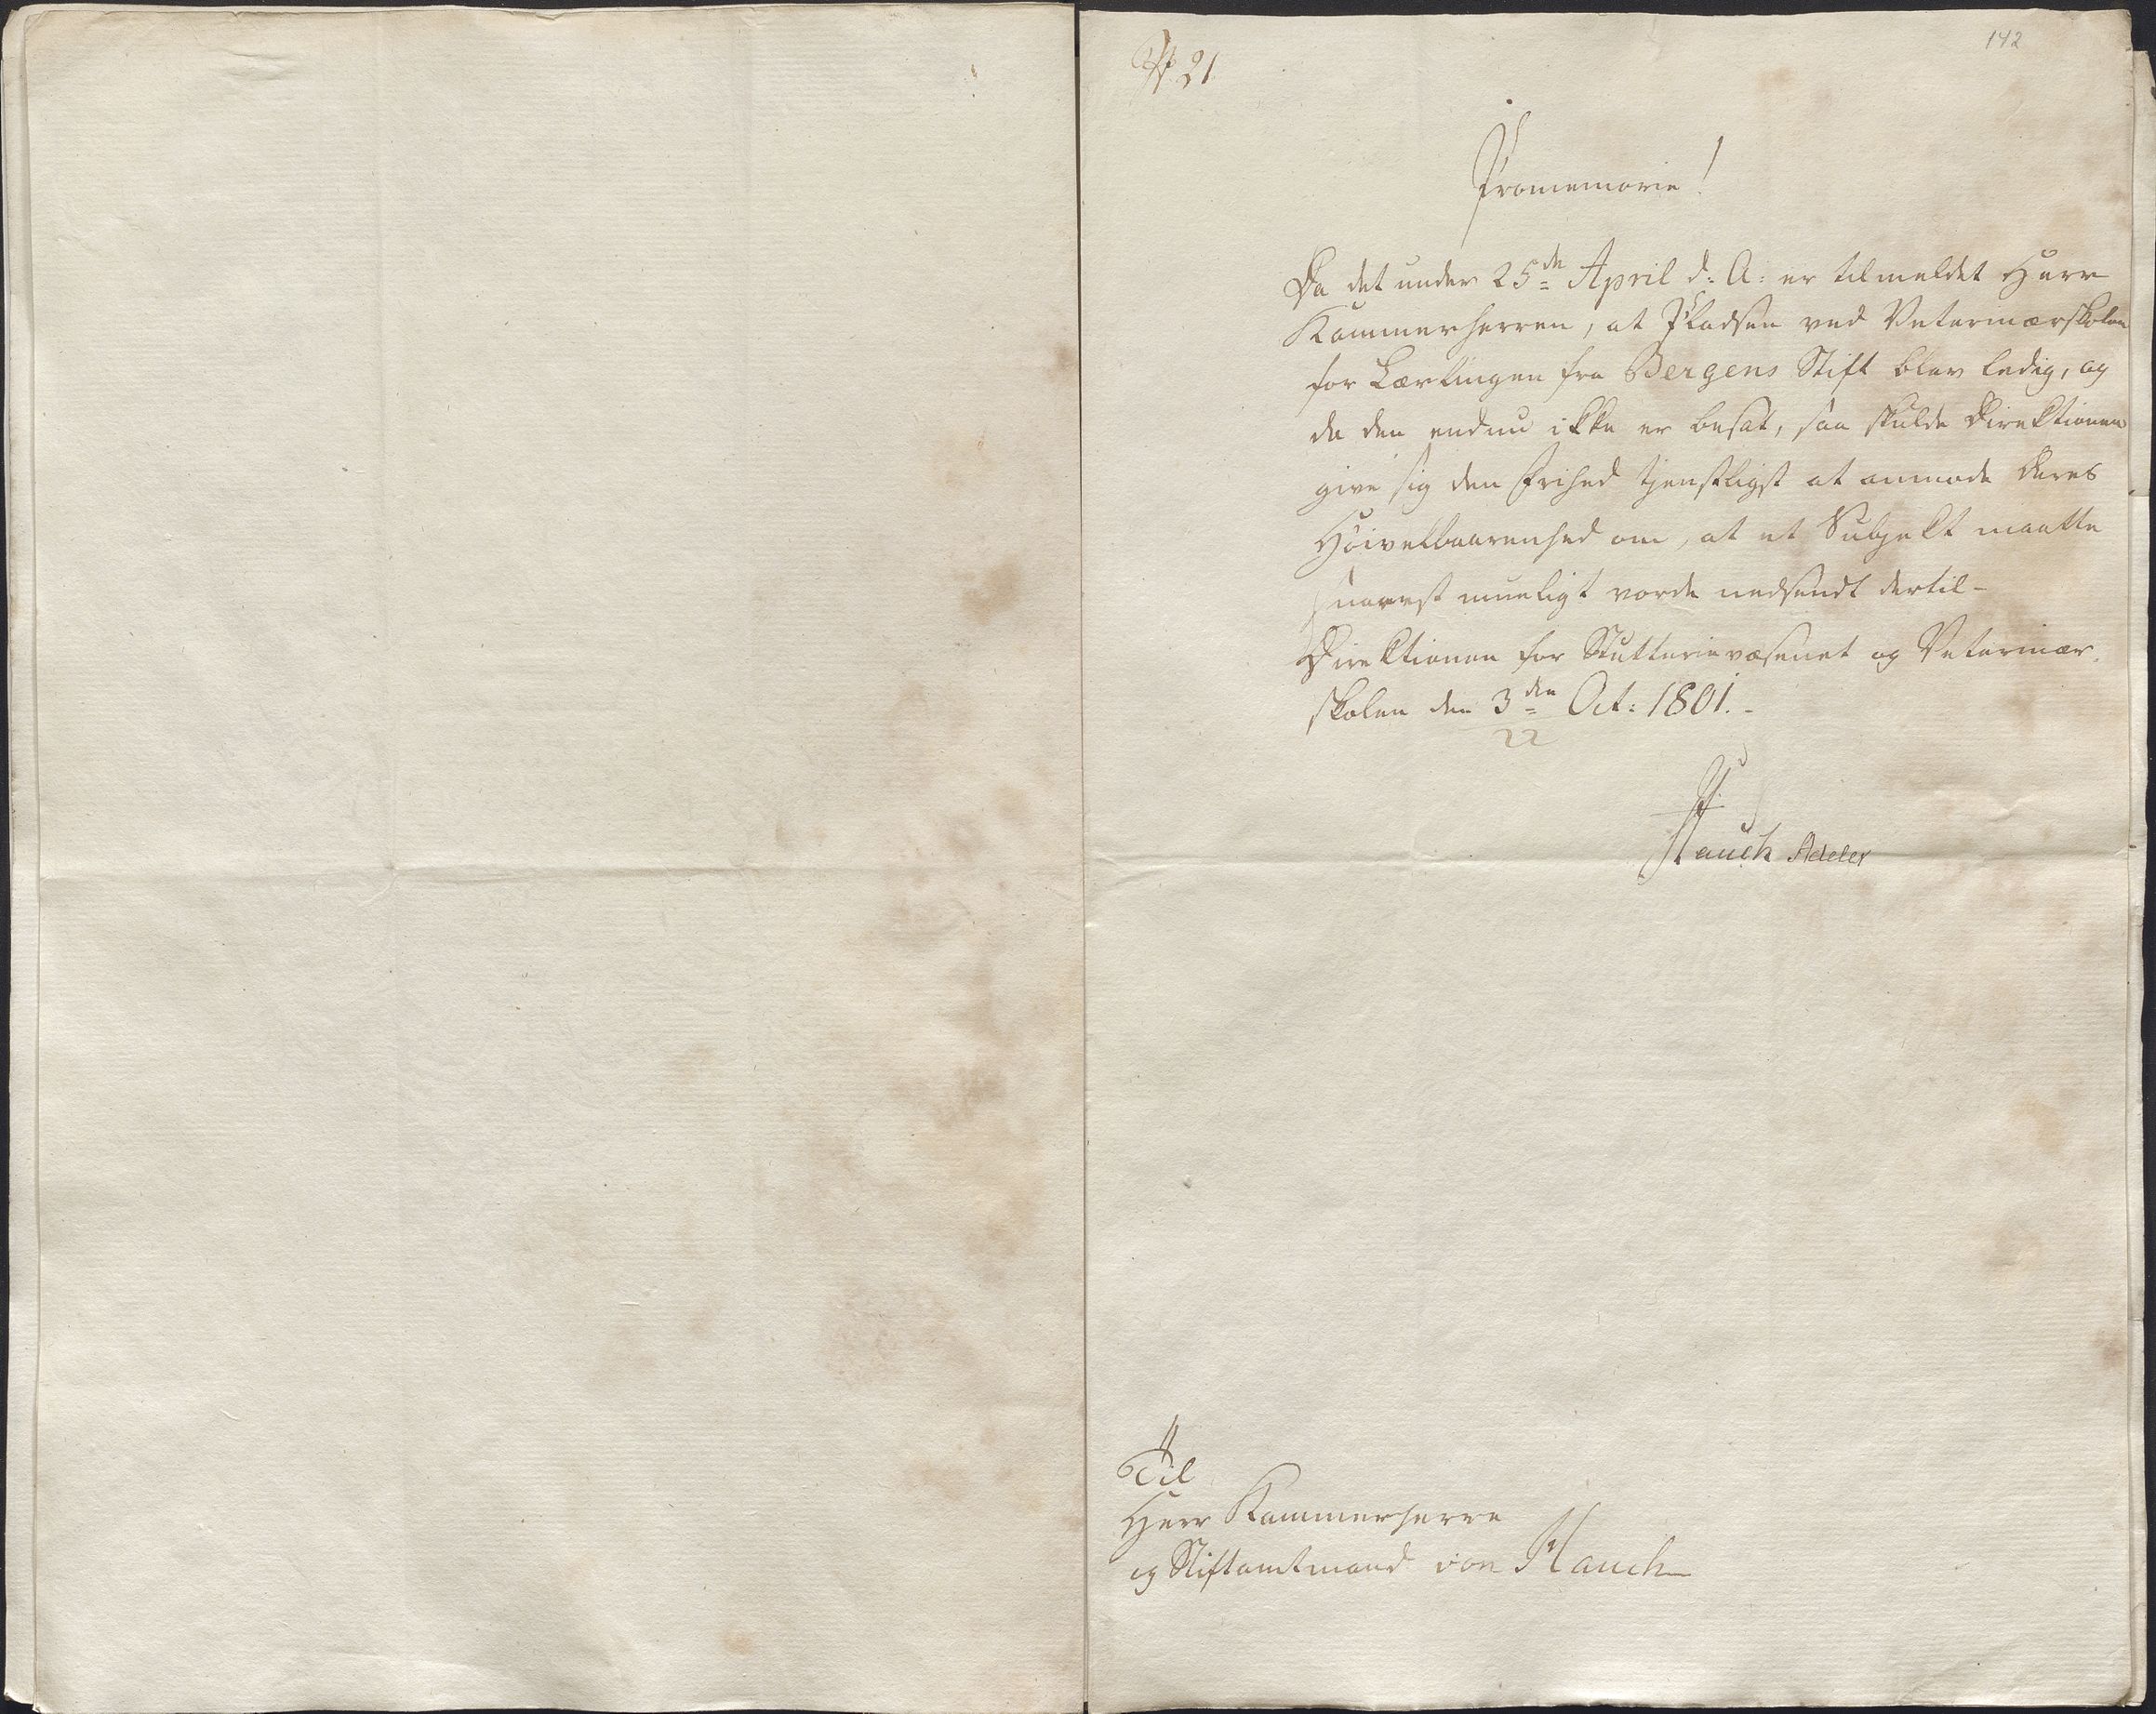 142
No 21
Promemorie!
Da det under 25de April d: A: er tilmeldet Herr
Kammerherren, at Pladsen ved Veterinærskolen
for Lærlingen fra Bergens Stift blev ledig, og
da den endnu ikke er besat, saa skulde Direktionen
give sig den Frihed tjenstligst at anmode Deres
Høivelbaarenhed om, at et Subjekt maatte
snarest mueligt vorde nedsendt dertil-
Direktionen for Stutterievæsenet og Veterinær-
skolen den 3den Oct: 1801.-
22
Hauch Adeler
Til
Herr Kammerherre
og Stiftamtmand von Hauch